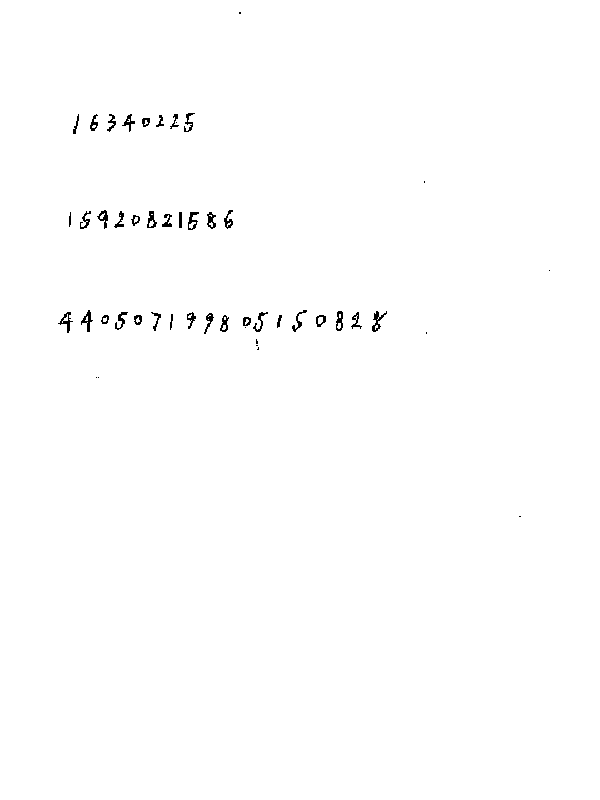 16340225
15920821586
440507199805150828